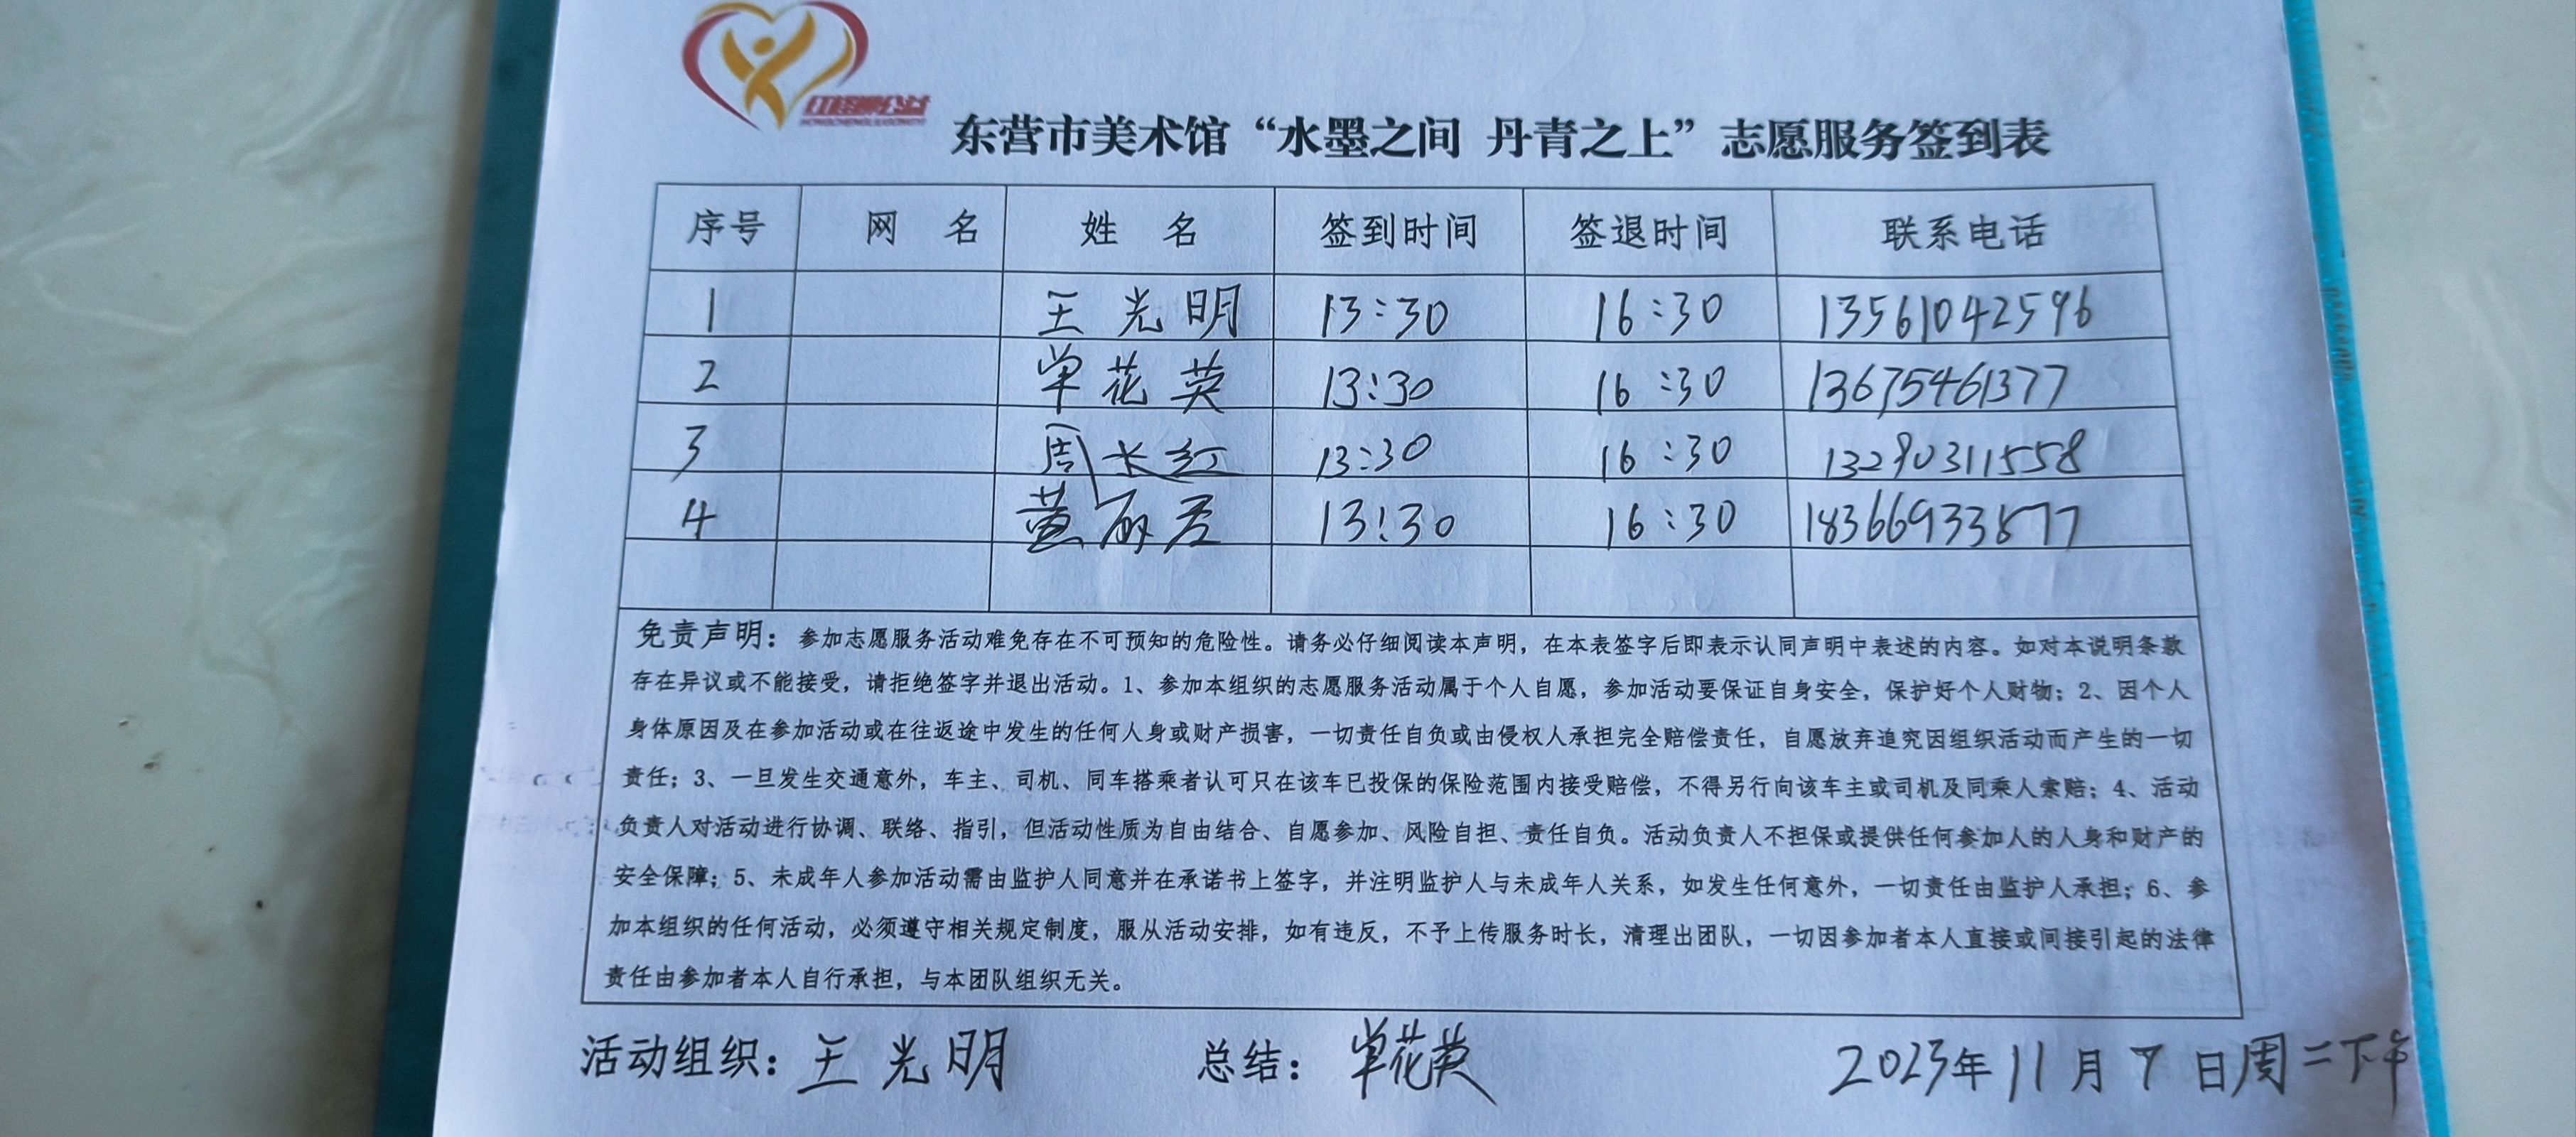 东营市美术馆“水墨之间 丹青之上”志愿服务签到表
序号 网 名 姓 名 签到时间 签退时间 联系电话
1 王光明 13:30 16:30 13561042596
2 单花英 13:30 16:30 13675461377
3 周长红 13:30 16:30 13290311558
4 黄丽君 13:30 16:30 18366933877
免责声明：参加志愿服务活动难免存在不可预知的危险性。请务必仔细阅读本声明，在本表签字后即表示认同声明中表述的内容。如对本说明条款
存在异议或不能接受，请拒绝签字并退出活动。1、参加本组织的志愿服务活动属于个人自愿，参加活动要保证自身安全，保护好个人财物；2、因个人
身体原因及在参加活动或在往返途中发生的任何人身或财产损害，一切责任自负或由侵权人承担完全赔偿责任，自愿放弃追究因组织活动而产生的一切
责任；3、一旦发生交通意外，车主、司机、同车搭乘者认可只在该车已投保的保险范围内接受赔偿，不得另行向该车主或司机及同乘人索赔；4、活动
负责人对活动进行协调、联络、指引，但活动性质为自由结合、自愿参加、风险自担、责任自负。活动负责人不担保或提供任何参加人的人身和财产的
安全保障；5、未成年人参加活动需由监护人同意并在承诺书上签字，并注明监护人与未成年人关系，如发生任何意外，一切责任由监护人承担；6、参
加本组织的任何活动，必须遵守相关规定制度，服从活动安排，如有违反，不予上传服务时长，清理出团队，一切因参加者本人直接或间接引起的法律
责任由参加者本人自行承担，与本团队组织无关。
活动组织：王光明 总结：单花英 2023年11月7日周二下午